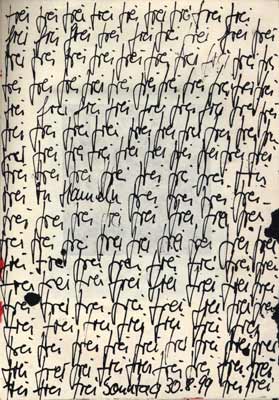 frei frei frei frei frei frei frei frei frei
frei frei frei frei frei frei frei frei frei
frei frei frei frei frei frei frei frei
frei frei frei frei frei frei frei frei
frei frei frei frei frei frei frei frei
frei frei frei frei frei frei frei frei
frei frei frei frei frei frei frei frei
frei frei frei frei frei frei frei frei
frei frei frei frei frei frei frei frei
frei frei frei frei frei frei frei frei
frei frei frei frei frei frei frei frei
frei in Hameln frei frei frei frei
frei frei frei frei frei frei frei frei
frei frei frei frei frei frei frei frei
frei frei frei frei frei frei frei
frei frei frei frei frei frei frei
frei frei frei frei frei frei frei
frei frei frei frei frei frei frei
frei frei frei frei frei frei frei
frei frei frei frei frei frei frei
frei frei frei frei frei frei frei frei
frei frei frei frei frei frei frei frei
frei frei frei Sonntag 30.8.99 frei